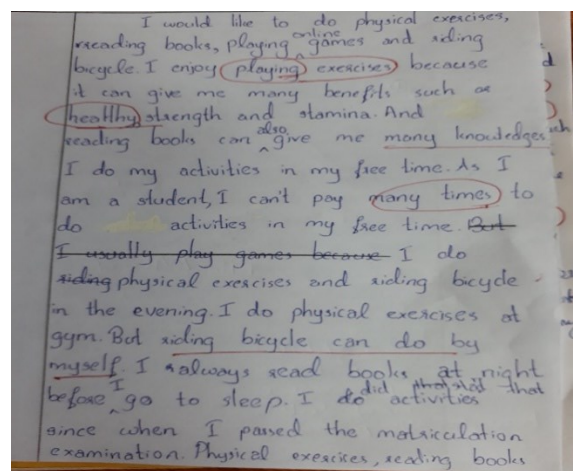 I would like to do physical exercises,
reading books, playing online games and riding
bicycle. I enjoy playing exercises because
it can give me many benefits such as
healthy, strength and stamina. And
reading books can also give me many knowledges.
I do my activities in my free time. As I
am a student, I can't pay many times to
do activities in my free time. But
I usually play games because I do
riding physical exercises and riding bicycle
in the evening. I do physical exercises at
gym. But riding bicycle can do by
myself. I always read books at night
before I go to sleep. I do did activities that
since when I passed the matriculation
examination. Physical exercises, reading books